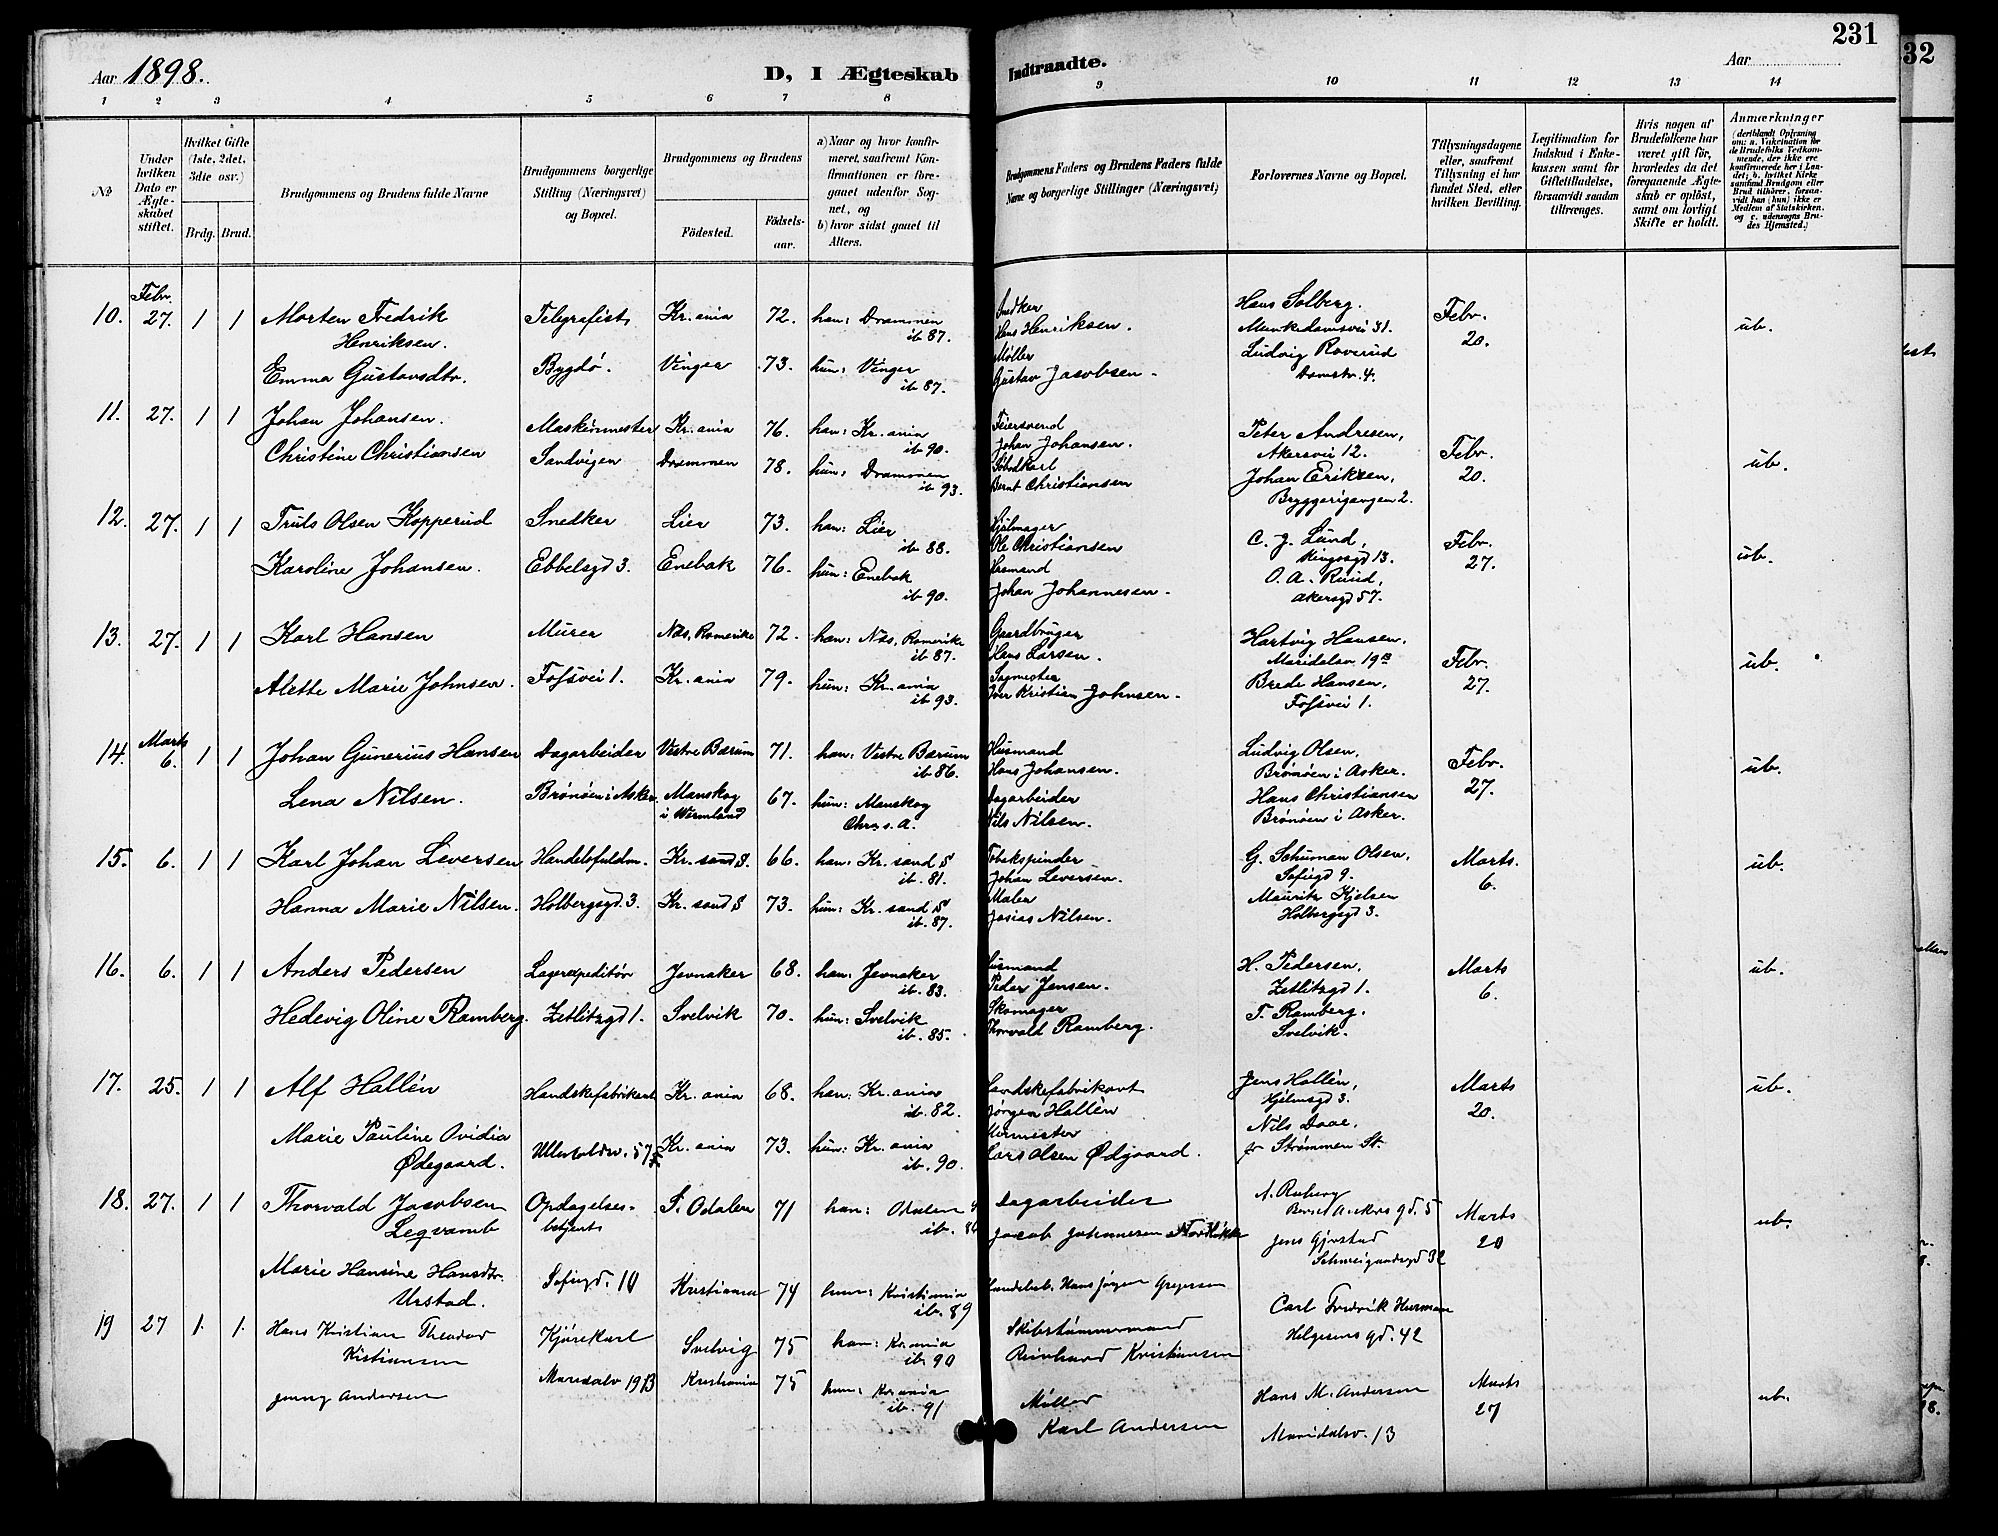 231
32
Aar 1898.
D, I Ægteskab Indtraadte.
Aar
1 2 3 4 5 6 7 8 9 10 11 12 13 14
No
Under hvilken Dato er Ægteskabet stiftet.
Hvilket Gifte (1ste, 2det, 3die osv.)
Brdg. Brud.
Brudgommens og Brudens fulde Navne
Brudgommens borgerlige Stilling (Næringsvei) og Bopæl.
Brudgommens og Brudens
Födested. Födsels-aar.
a) Naar og hvor konfirmeret, saafremt Konfirmationen er foregaaet udenfor Sognet, og
b) hvor sidst gaaet til Alters.
Brudgommens Faders og Brudens Faders fulde Navne og borgerlige Stillinger (Næringsvei)
Forlovernes Navne og Bopæl.
Tillysningsdagene eller, saafremt Tillysning ei har fundet Sted, efter hvilken Bevilling.
Legitimation for Indskud i Enkekassen samt for Giftetilladelse, forsaavidt saadan tiltrænges.
Hvis nogen af Brudefolkene har været gift før, hvorledes da det foregaaende Ægteskab er opløst, samt om lovligt Skifte er holdt.
Anmærkninger
(deriblandt Oplysning om: a. Vakcination for de Brudefolks Vedkommende, der ikke ere konfirmerede her i Landet; b. hvilket Kirkesamfund Brudgom eller Brud tilhörer, forsaavidt han (hun) ikke er Medlem af Statskirken, og c. udensogns Brudes Hjemsted.)
Febr.
10. 27. 1 1 Morten Fredrik Telegrafist Kr.ania 72. han: Drammen Hans Solberg. Febr. ub.
Henriksen. ib 87. Hans Henriksen. Munkedamsvei 31. 20.
Emma Gustavsdtr. Bygdø. Vinger 73. hun: Vinger Møller Ludvig Roverud
ib 87. Gustav Jacobsen. Damstr. 4.
11. 27. 1 1 Johan Johansen. Maskinmester Kr.ania 76. han: Kr.ania Feiersvend Peter Andresen, Febr. ub.
ib 90. Johan Johansen. Akersvei 12. 20.
Christine Christiansen Sandvigen Drammen 78. hun: Drammen Johan Eriksen,
ib 93. Bernt Christiansen Bryggerigangen 2.
12. 27. 1 1 Truls Olsen Kopperud Snedker Lier 73. han: Lier Hjulmager C. J. Lund, Febr. ub.
ib 88. Ole Christiansen Ringsgd 13. 27.
Karoline Johansen. Ebbelsgd 3. Enebak 76. hun: Enebak Husmand O. A. Ruud,
ib 90. Johan Johannesen. Akersgd 57.
13. 27. 1 1 Karl Hansen Murer Næs, Romerike 72. han: Næs, Romerike Gaardbruger Hartvig Hansen. Febr. ub.
ib 87. Hans Larsen. Maridalsv. 19 B 27.
Alette Marie Johnsen. Fossvei 1. Kr.ania 79. hun: Kr.ania Sagmester Brede Hansen,
ib 93. Iver Kristian Johnsen. Fossvei 1.
Marts
14. 6. 1 1 Johan Gunerius Hansen Dagarbeider Vestre Bærum 71. han: Vestre Bærum Husmand Ludvig Olsen, Febr. ub.
ib 86. Hans Johansen. Brønøen i Asker. 27.
Lena Nilsen. Brønøen i Asker Manskog 67. hun: Manskog Dagarbeider Hans Christiansen
i Wermland Chra s. A. Nils Nilsen. Brønøen i Asker.
15. 6. 1 1 Karl Johan Leversen Handelsfuldm. Kr.sand S. 66. han: Kr.sand S Tobakspinder G. Schuman Olsen, Marts. ub.
ib. 81. Johan Leversen. Sofiegd 9. 6.
Hanna Marie Nilsen. Holbergsgd. 3. Kr.sand S 73. hun: Kr.sand S Maler Mauritz Kjelsen
ib. 87. Josias Nilsen. Holbergsgd 3.
16. 6. 1 1 Anders Pedersen Lagerexpeditør Jevnaker 68. han: Jevnaker Husmand H. Pedersen, Marts ub.
ib. 83. Peder Jensen. Zetlitzgd 1. 6.
Hedevig Oline Ramberg. Zetlitzgd 1. Svelvik 70. hun: Svelvik Skomager T. Ramberg.
ib. 85. Thorvald Ramberg. Svelvik.
17. 25. 1 1 Alf Hallén Handskefabrikant Kr.ania 68. han: Kr.ania Handskefabrikant Jens Hallén, Marts ub.
ib 82. Jørgen Hallén Hjelmsgd 3. 20.
Marie Pauline Ovidia Ullevoldsv. 57 Kr.ania 73. hun: Kr.ania Murmester Nils Daae,
Ødegaard. ib. 90. Lars Olsen Ødgaard. pr Strømmen St.
18. 27. 1 1 Thorvald Jacobsen Opdagelses- S. Odalen 71 han: Odalen Dagarbeider Marts ub.
Legvamb betjent ib. 86 Jacob Johannesen Bernt Ankers gd. 5 20
Jens Gjerstad
Schweigaardsgd 32
Marie Hansine Hansdtr. Sofiegd. 10 Kristiania 74 hun: Kristiania Hans Jørgen Gregersen
Urstad. ib. 89
19 27 1. 1. Hans Kristian Theodor Kjørekarl Svelvig 75 han: Kr.ania Skibstømmermand Carl Fredrik Hurman Marts ub.
Kistiansen ib 90 Reinhard Kristiansen Helgesens gd. 42 27
Jenny Andersen Maridalsv 19 B Kristiania 75 hun: Kr.ania Møller Hans M. Andersen
ib. 91 Karl Andersen Maridalsv. 13